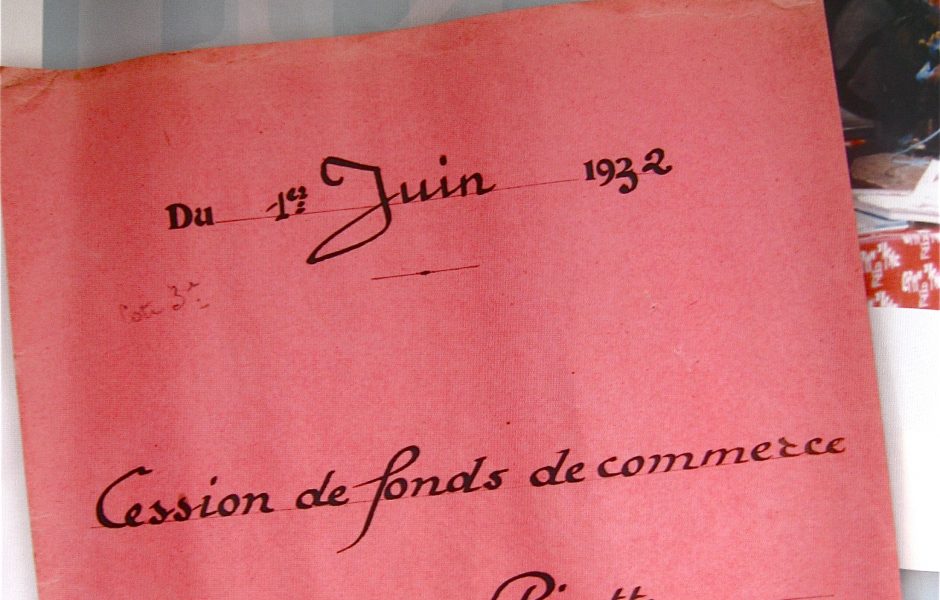 Du 1er Juin 1932
Cote 3e
Cession de fonds de commerce